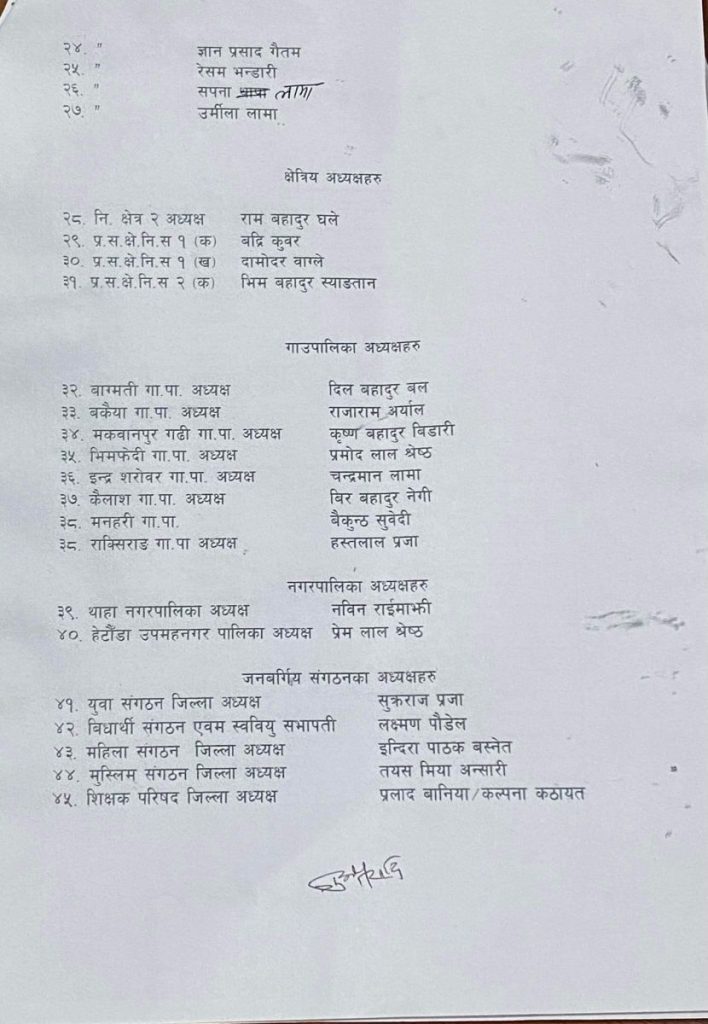 २४. " ज्ञान प्रसाद गैतम
२५. " रेसम भन्डारी
२६. " सपना लामा
२७. " उर्मीला लामा
क्षेत्रिय अध्यक्षहरु
२८. नि. क्षेत्र २ अध्यक्ष राम बहादुर घले
२९. प्र.स.क्षे.नि.स १ (क) बद्रि कुवर
३०. प्र.स.क्षे.नि.स १ (ख) दामोदर वाग्ले
३१. प्र.स.क्षे.नि.स २ (क) भिम बहादुर स्याङतान
गाउपालिका अध्यक्षहरु
३२. बाग्मती गा.पा. अध्यक्ष दिल बहादुर बल
३३. बकैया गा.पा. अध्यक्ष राजाराम अर्याल
३४. मकवानपुर गढी गा.पा. अध्यक्ष कृष्ण बहादुर बिडारी
३५. भिमफेदी गा.पा. अध्यक्ष प्रमोद लाल श्रेष्ठ
३६. इन्द्र शरोवर गा.पा. अध्यक्ष चन्द्रमान लामा
३७. कैलाश गा.पा. अध्यक्ष बिर बहादुर नेगी
३८. मनहरी गा.पा. बैकुन्ठ सुवेदी
३८. राक्सिराङ गा.पा अध्यक्ष हस्तलाल प्रजा
नगरपालिका अध्यक्षहरु
३९. थाहा नगरपालिका अध्यक्ष नविन राईमाझी
४०. हेटौंडा उपमहनगर पालिका अध्यक्ष प्रेम लाल श्रेष्ठ
जनबर्गिय संगठनका अध्यक्षहरु
४१. युवा संगठन जिल्ला अध्यक्ष सुकराज प्रजा
४२. विधार्थी संगठन एवम स्ववियु सभापती लक्ष्मण पौडेल
४३. महिला संगठन जिल्ला अध्यक्ष इन्दिरा पाठक बस्नेत
४४. मुस्लिम संगठन जिल्ला अध्यक्ष तयस मिया अन्सारी
४५. शिक्षक परिषद जिल्ला अध्यक्ष प्रलाद बानिया/कल्पना कठायत